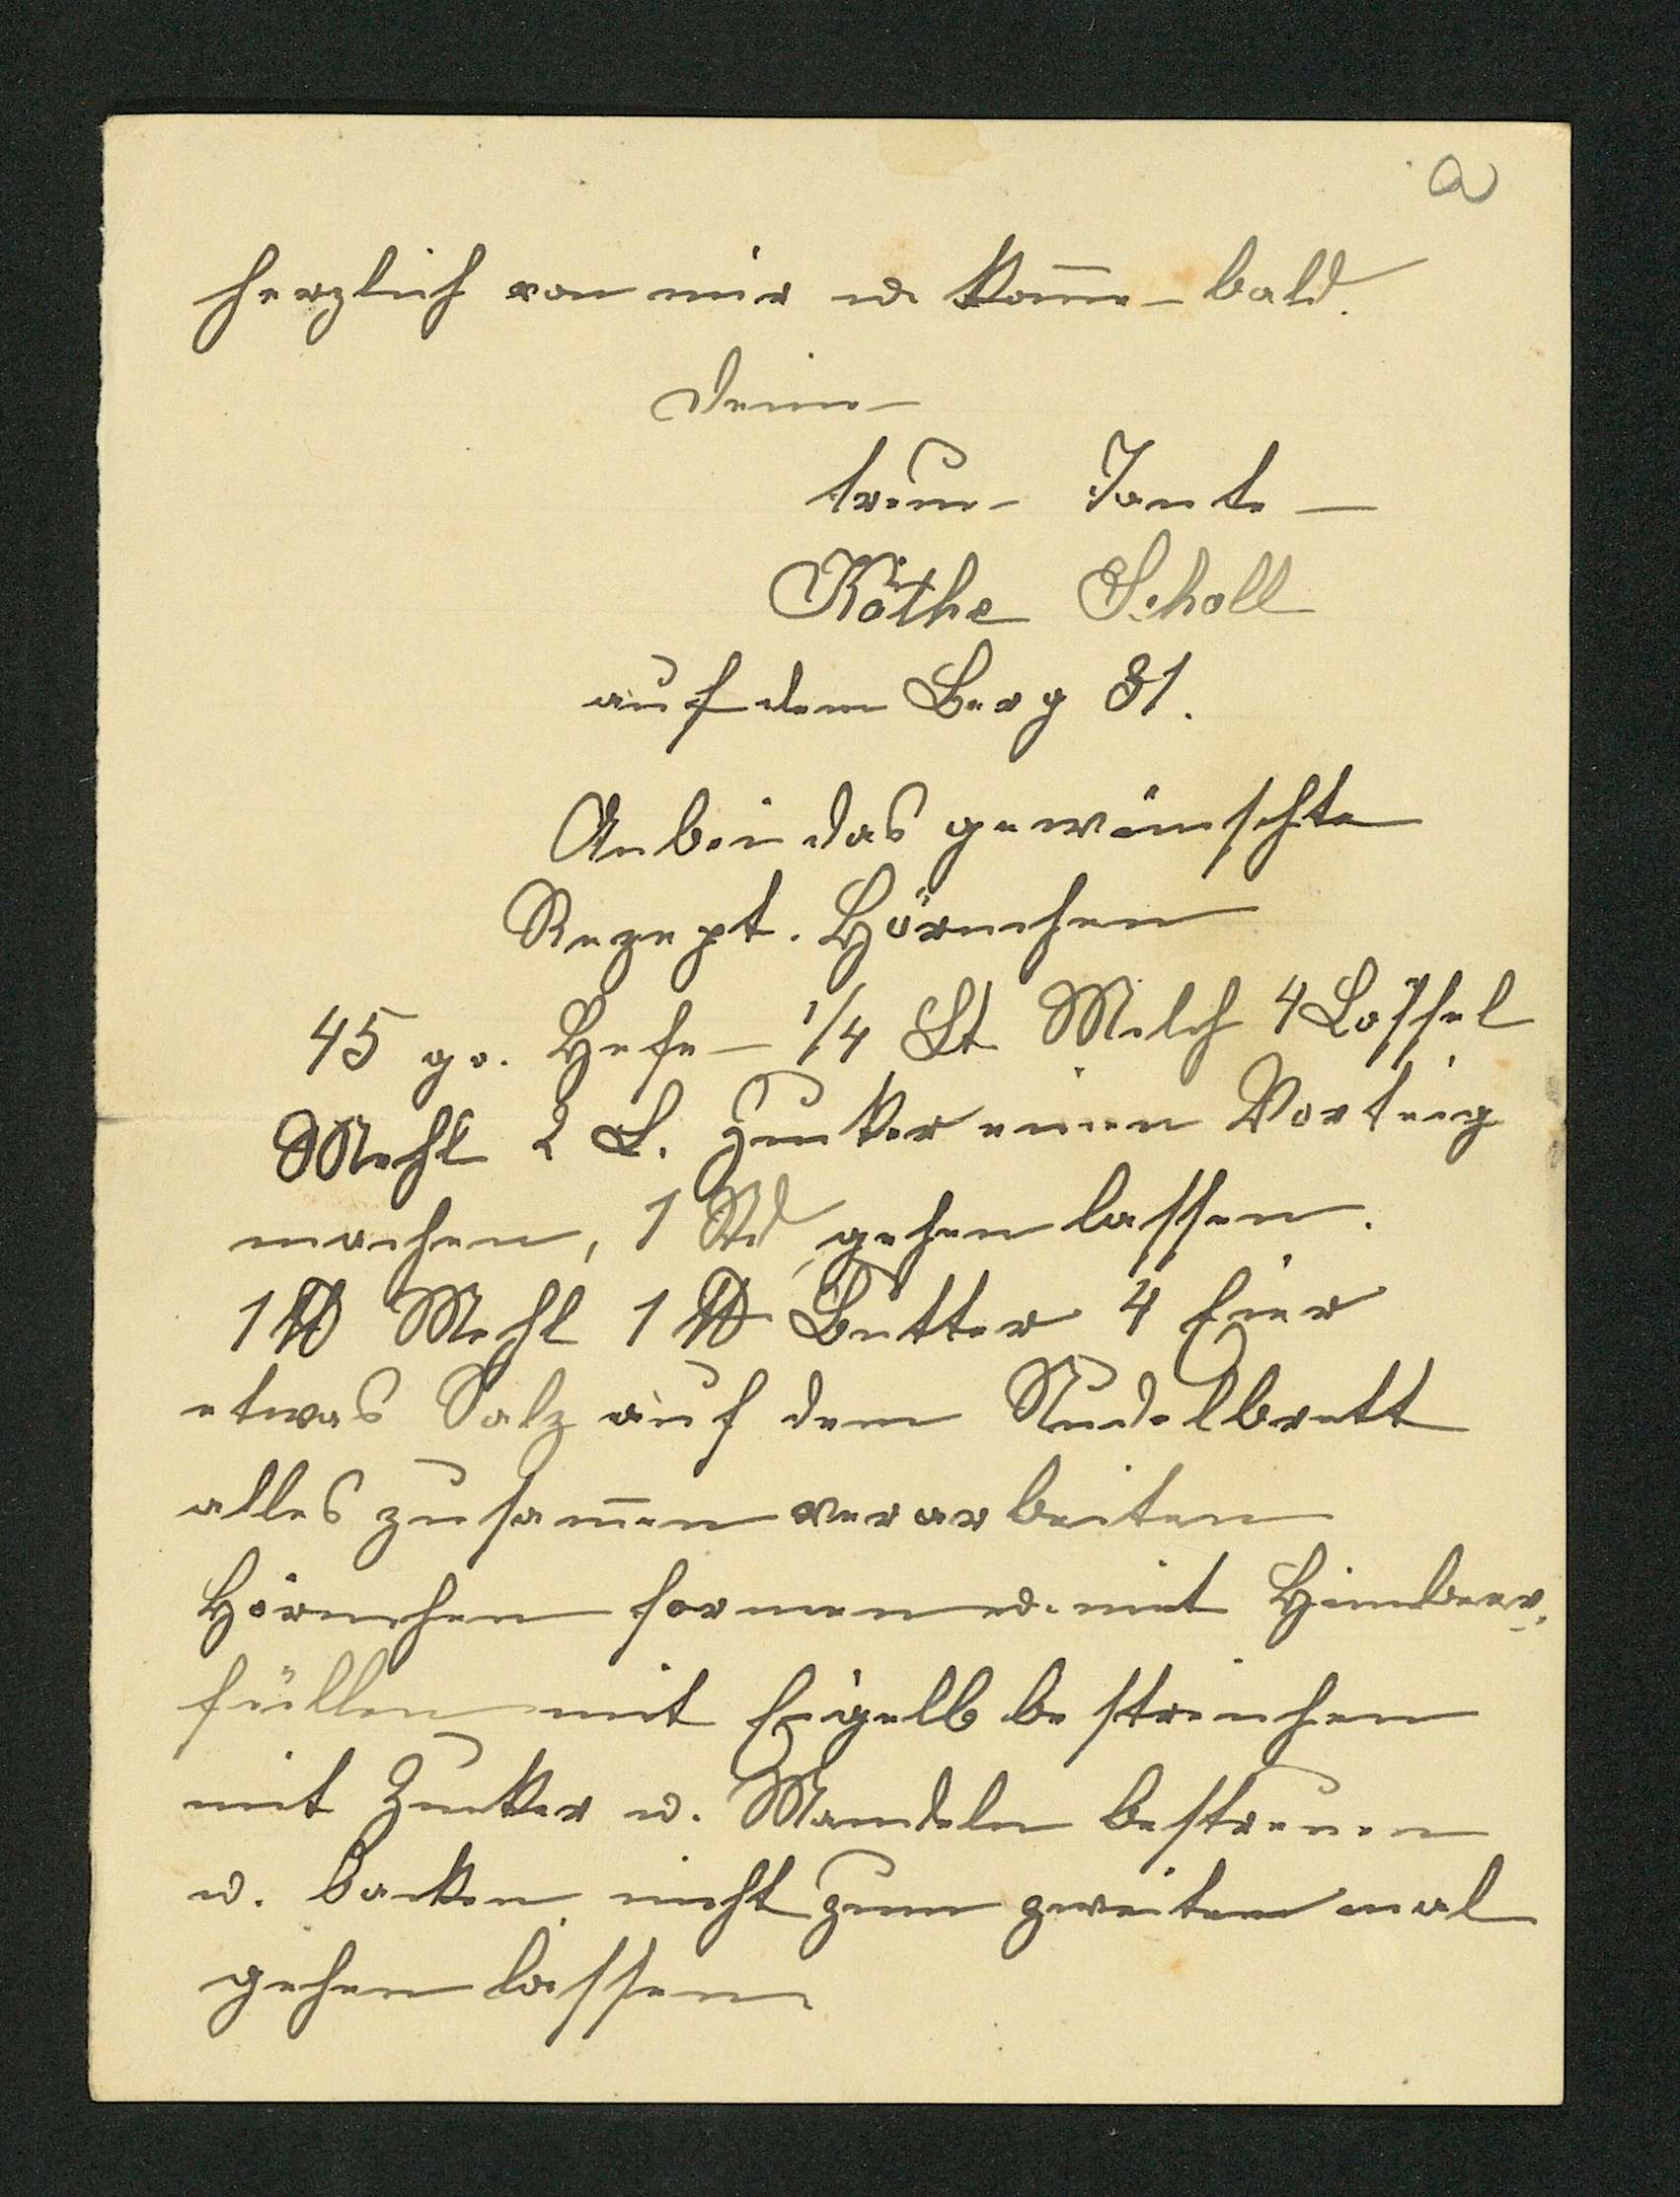 a
herzlich von mir u. kom̄e bald.
Deine
treue Tante
Käthe Scholl
auf dem Berg 31.
Anbei das gewünschte
Rezept. Hörnchen
45 gr. Hefe – 1/4 Lt Milch 4 Löffel
Mehl 2 L. Zucker einen Vorteig
machen, 1 Std gehen lassen.
1 ℔ Mehl 1 ℔ Butter 4 Eier
etwas Salz auf dem Nudelbrett
alles zusam̄en verarbeiten
Hörnchen formen u. mit Himbeer.
füllen mit Eigelb bestreichen
mit Zucker u. Mandeln bestreuen
u. backen nicht zum zweiten mal
gehen lassen